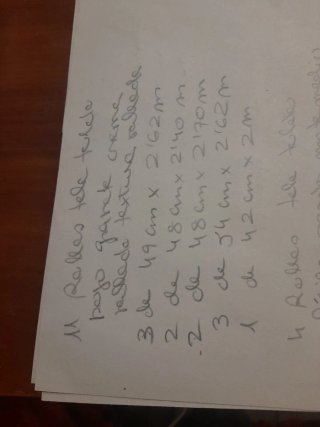 11 Rolles tela toldo
rallada textura rallada
3 de 49 cm x 2'62 m
2 de 48 cm x 2'40 m
2 de 48 cm x 2'70 m
3 de 54 cm x 2'62 m
1 de 42 cm x 2 m
4 Rolles tela toldo